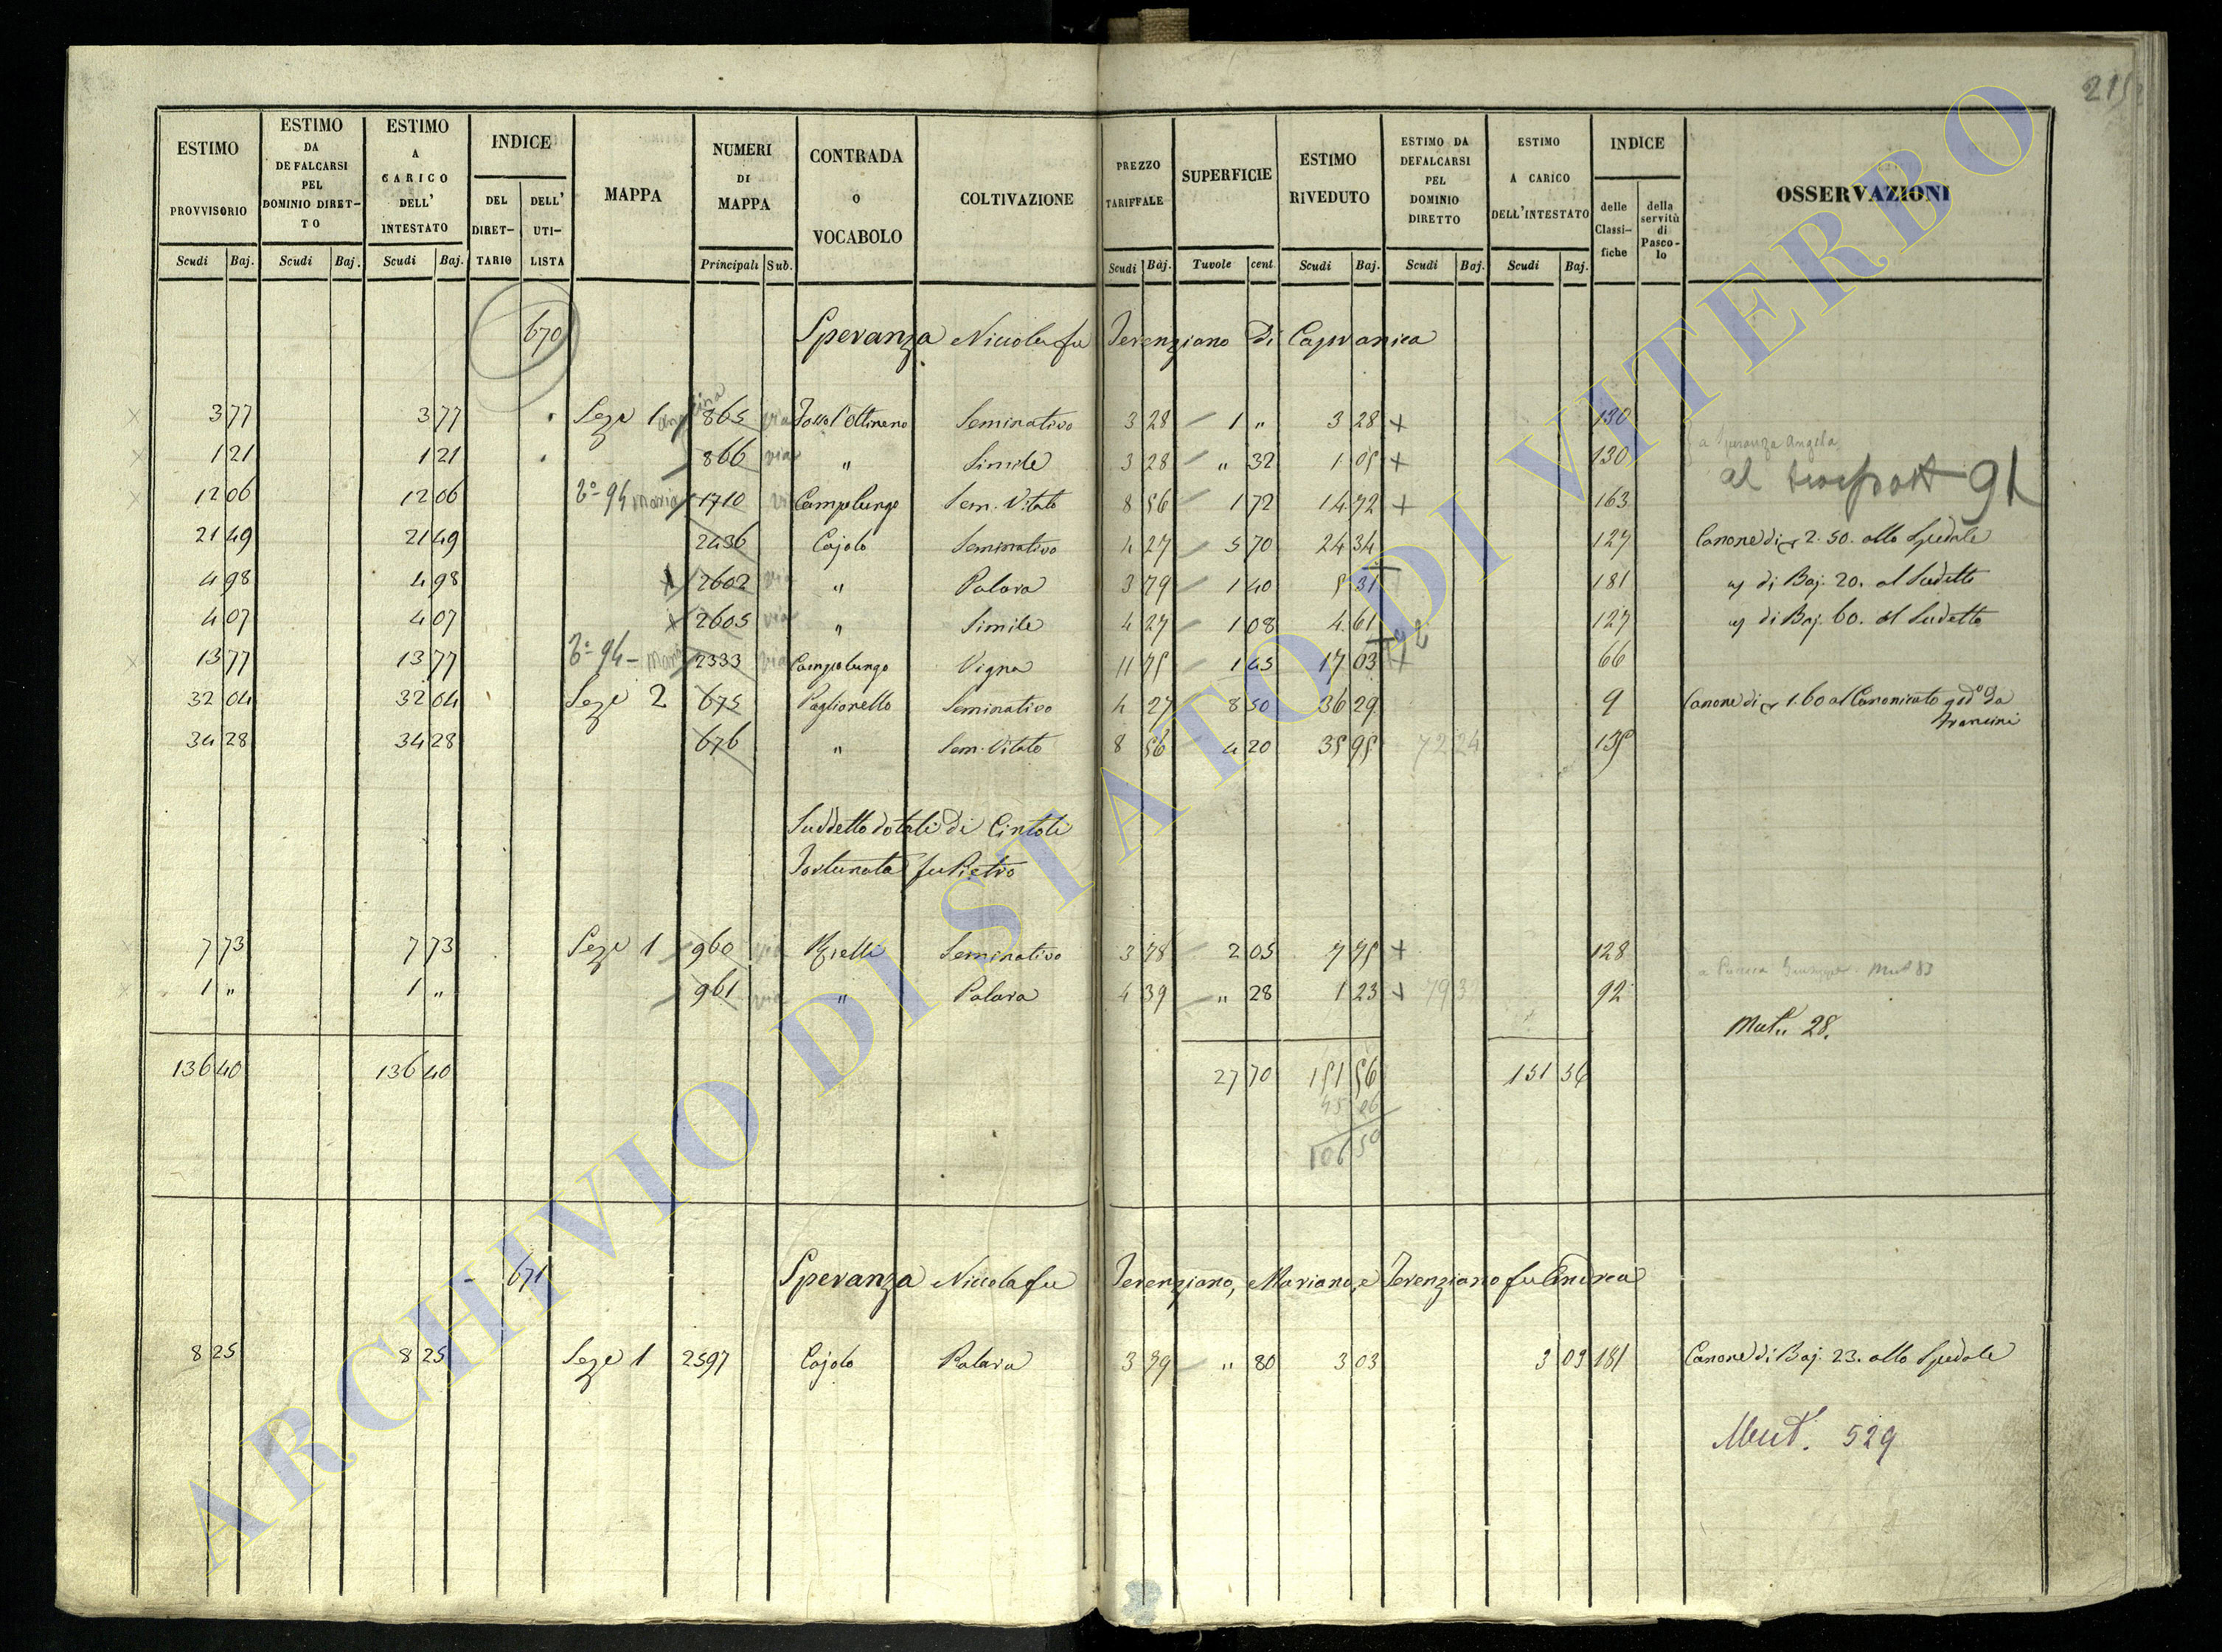 215
ESTIMO PROVVISORIO Scudi Baj.
ESTIMO DA DEFALCARSI PEL DOMINIO DIRETTO Scudi Baj.
ESTIMO A CARICO DELL' INTESTATO Scudi Baj.
INDICE DEL DIRETTARIO DELL' UTILISTA
MAPPA
NUMERI DI MAPPA Principali Sub.
CONTRADA O VOCABOLO
COLTIVAZIONE
PREZZO TARIFFALE Scudi Baj.
SUPERFICIE Tavole cent.
ESTIMO RIVEDUTO Scudi Baj.
ESTIMO DA DEFALCARSI PEL DOMINIO DIRETTO Scudi Baj.
ESTIMO A CARICO DELL'INTESTATO Scudi Baj.
INDICE delle Classifiche della servitù di Pascolo
OSSERVAZIONI
670 Speranza Niccola fu Terenziano di Capranica
3 77 3 77 Sez. 1 865 via Seminativo 3 28 1 " 3 28 + 130
a Speranza Angela
1 21 1 21 866 via " Simile 3 28 " 32 1 05 + 130
al 91
12 06 12 06 94 Maria 1710 Campolungo Sem. Vitato 8 56 1 72 14 72 + 163
21 49 21 49 2436 Cajolo Seminativo 4 27 5 70 24 34 127 Canone di 2. 50. allo Spedale
4 98 4 98 2602 via " Palara 3 79 1 40 5 31 181 di Baj. 20. al Sudetto
4 07 4 07 2605 via " Simile 4 27 1 08 4 61 127 di Baj. 60. al Sudetto
13 77 13 77 94 2333 via Campolungo Vigna 11 75 1 45 17 03 + 66
32 04 32 04 Sez. 2 675 Paglionello Seminativo 4 27 8 50 36 29 9 Canone di 1.60 al Canonicato god.º da
Francini
34 28 34 28 676 " Sem. Vitato 8 56 4 20 35 95 72 24 135
Suddetto dotali di Cintoli
Fortunata fu Pietro
7 73 7 73 Sez. 1 960 via Seminativo 3 78 2 05 7 75 + 128
Mut 83
1 " 1 " 961 via " Palara 4 39 " 28 1 23 + 92
Mut. 28.
136 40 136 40 27 70 151 56 151 56
45 06
106 50
671 Speranza Niccola fu Terenziano, Mariano, e Terenziano fu Andrea
8 25 8 25 Sez. 1 2597 Cajolo Palara 3 79 " 80 3 03 3 03 181 Canone di Baj. 23. allo Spedale
Mut. 529
ARCHIVIO DI STATO DI VITERBO